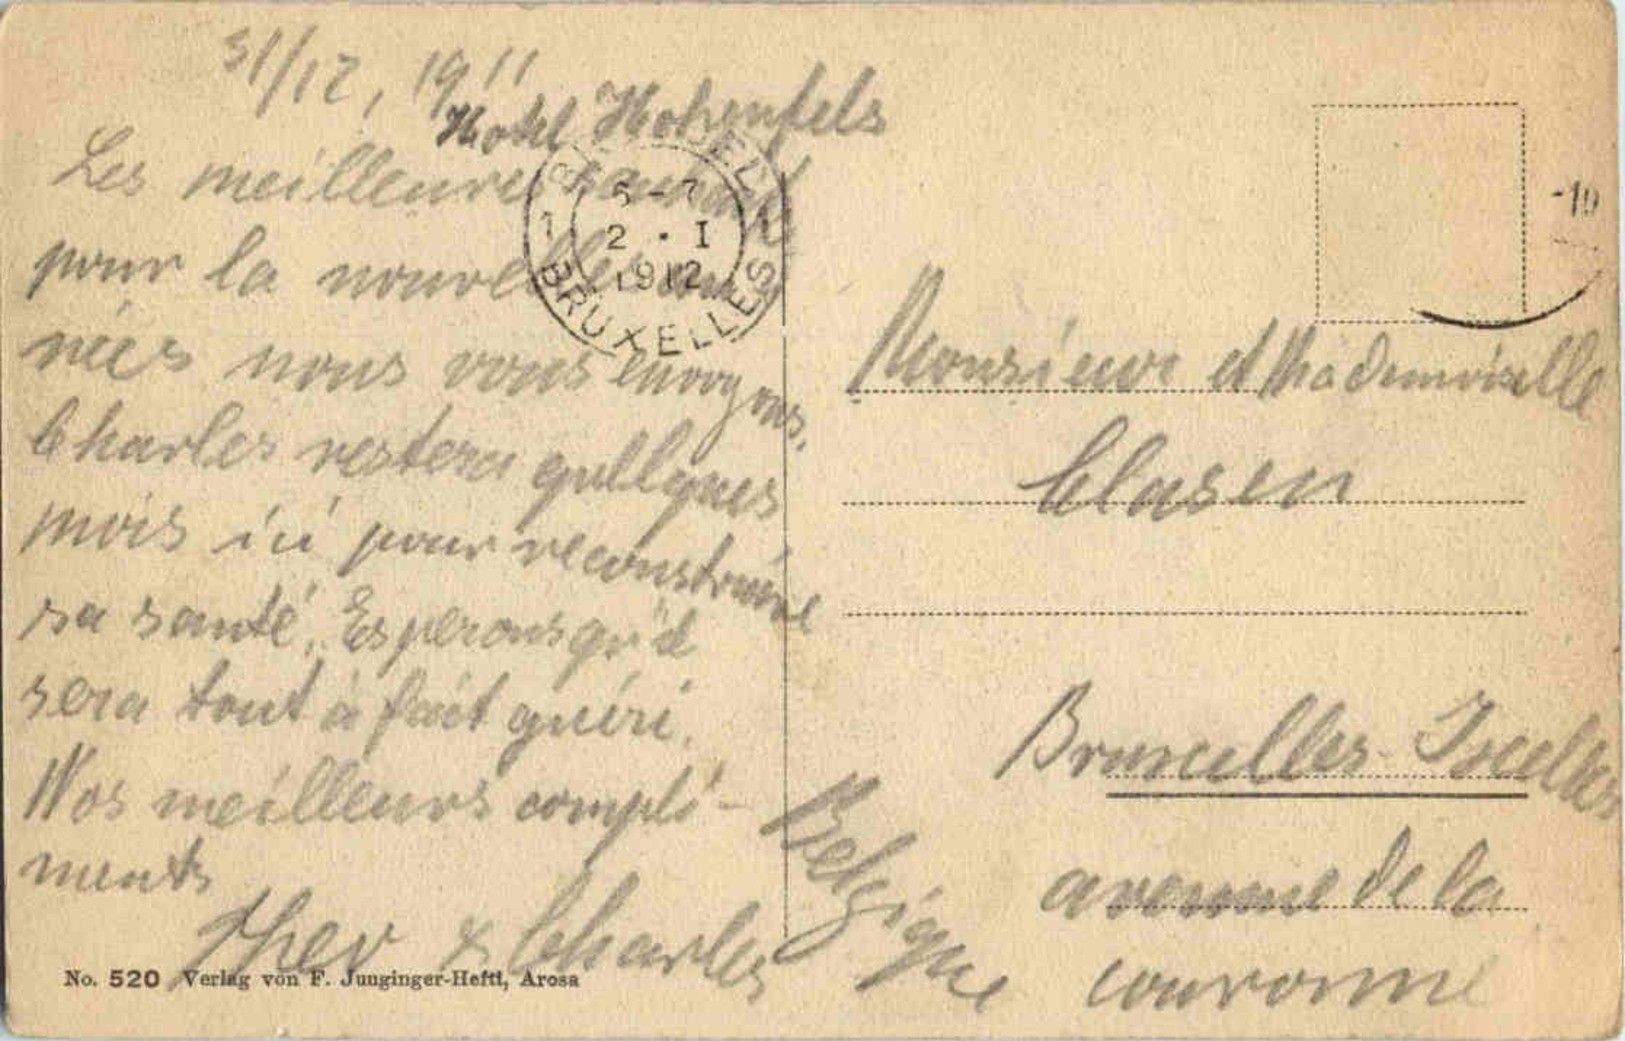 31/12, 1911
Hotel Hohenfels
Les meilleures
pour la nouvelle an
nées nous vous envoyons.
Charles restera quellques
mois ici pour reconstruire
sa santé. Esperons qu'il
sera tout à fait guéri.
Nos meilleurs compli-
ments
& Charles
No. 520 Verlag von F. Junginger-Hefti, Arosa
5-7
1 2 · I 1
1912
BRUXELLES
-10
Monsieur et Mademoiselle
Clasen
Bruxelles-Ixelles
avenue de la
couronne
Belgique